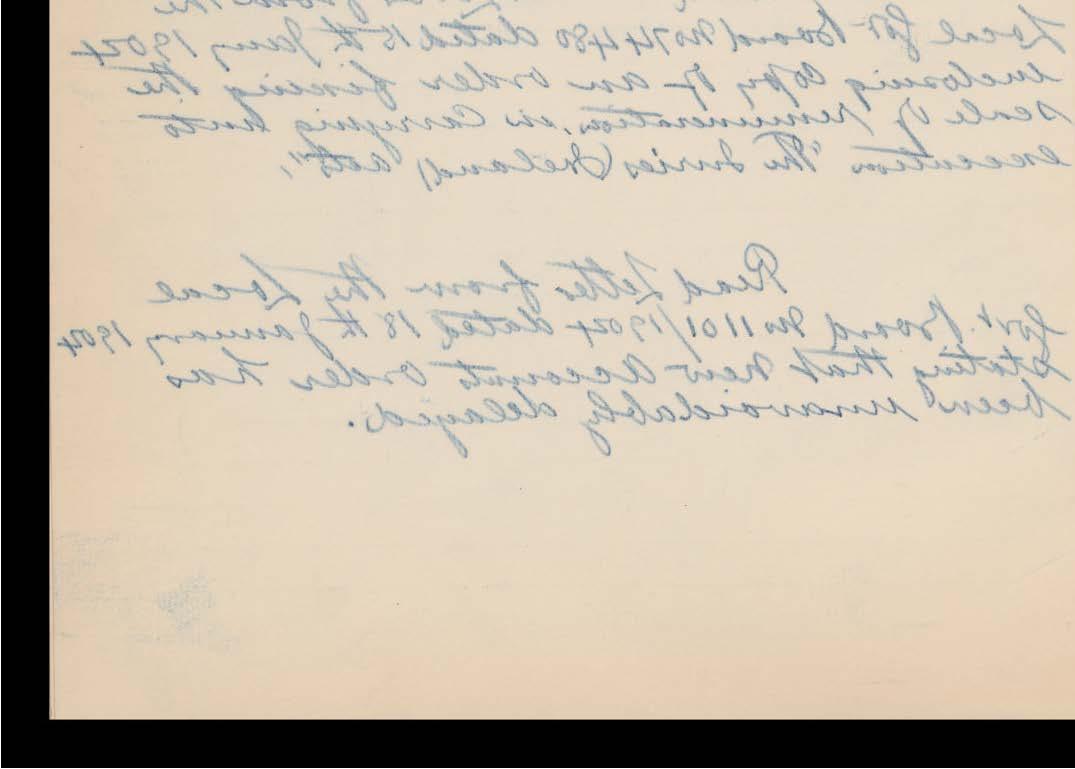 the
Local Gov Board No 74480 dated 15th Jany 1904
enclosing Copy of an order fixing the
scale of remuneration, in Carrying into
execution "The Juries (Ireland) acts",
Read Letter from the Local
Govt. Board No 1101/1904 dated 18th January 1904
Stating that new accounts order has
been unavoidably delayed.